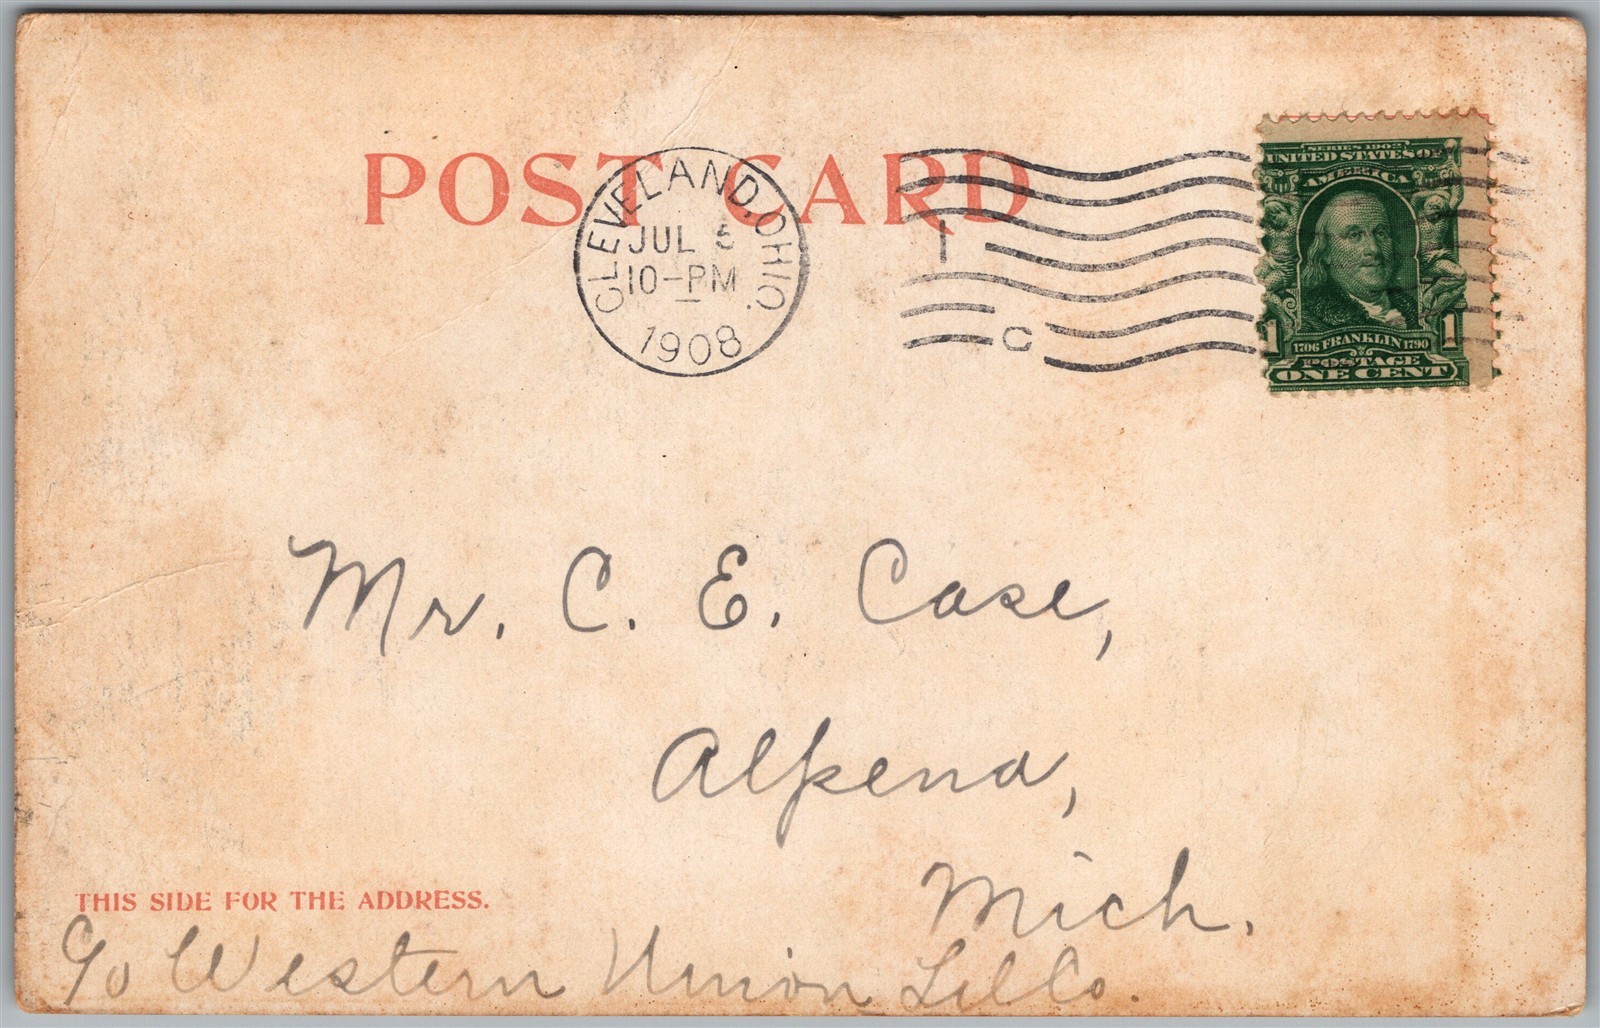 POST CARD
CLEVELAND, OHIO.
JUL 5
10-PM
1908
1
C
SERIES 1902
UNITED STATES OF
AMERICA
1706 FRANKLIN 1790
POSTAGE
1 1
ONE CENT
Mr. C. E. Case,
Alpena,
Mich.
THIS SIDE FOR THE ADDRESS.
c/o Western Union Tel Co.